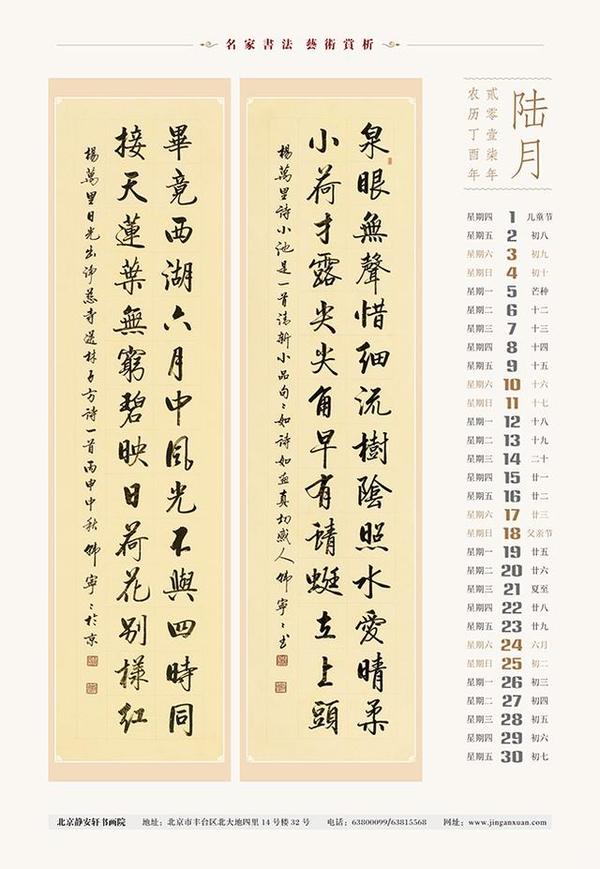 名家書法 藝術賞析
陆月
贰零壹柒年
农历丁酉年
泉眼無聲惜細流樹陰照水愛晴柔
小荷才露尖尖角早有蜻蜓立上頭
楊萬里詩小池是一首清新小品句〻如詩如画真切感人 韓寧〻书
畢竟西湖六月中風光不與四時同
接天蓮葉無窮碧映日荷花別樣紅
楊萬里曉出淨慈寺送林子方詩一首丙申中秋 韓寧〻於京
星期四 1 儿童节
星期五 2 初八
星期六 3 初九
星期日 4 初十
星期一 5 芒种
星期二 6 十二
星期三 7 十三
星期四 8 十四
星期五 9 十五
星期六 10 十六
星期日 11 十七
星期一 12 十八
星期二 13 十九
星期三 14 二十
星期四 15 廿一
星期五 16 廿二
星期六 17 廿三
星期日 18 父亲节
星期一 19 廿五
星期二 20 廿六
星期三 21 夏至
星期四 22 廿八
星期五 23 廿九
星期六 24 六月
星期日 25 初二
星期一 26 初三
星期二 27 初四
星期三 28 初五
星期四 29 初六
星期五 30 初七
北京静安轩书画院 地址：北京市丰台区北大地四里14号楼32号 电话：63800099/63815568 网址：www.jinganxuan.com